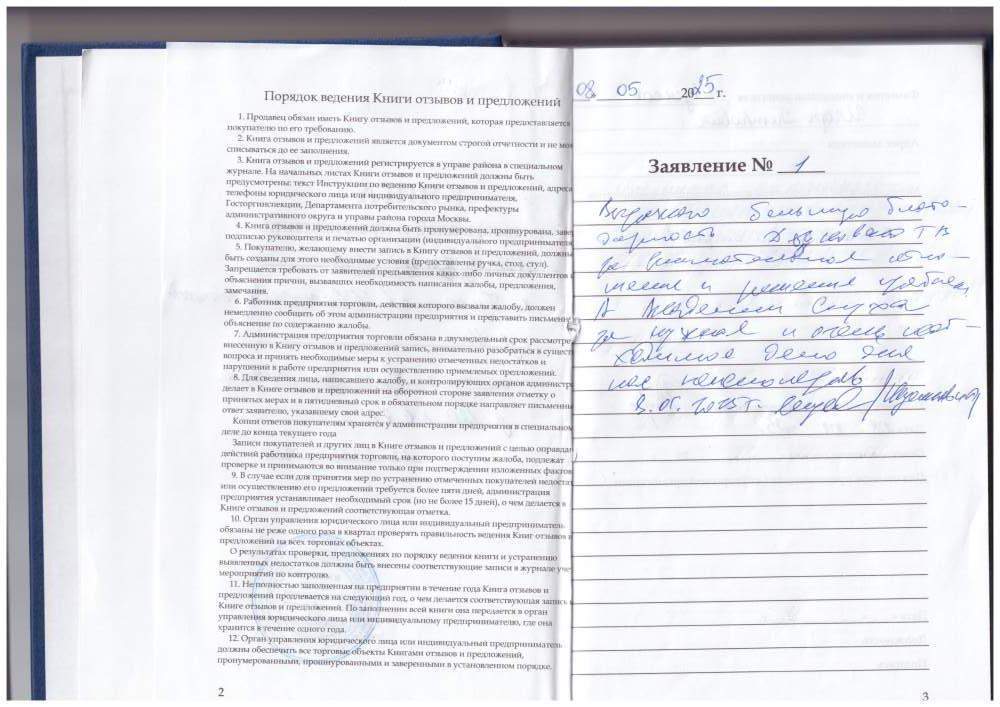 Порядок ведения Книги отзывов и предложений
1. Продавец обязан иметь Книгу отзывов и предложений, которая предоставляется
покупателю по его требованию.
2. Книга отзывов и предложений является документом строгой отчетности и не мож
списываться до ее заполнения.
3. Книга отзывов и предложений регистрируется в управе района в специальном
журнале. На начальных листах Книги отзывов и предложений должны быть
предусмотрены: текст Инструкции по ведению Книги отзывов и предложений, адреса
телефоны юридического лица или индивидуального предпринимателя,
Госторгинспекции, Департамента потребительского рынка, префектуры
административного округа и управы района города Москвы.
4. Книга отзывов и предложений должна быть пронумерована, прошнурована, заве
подписью руководителя и печатью организации (индивидуального предпринимателя
5. Покупателю, желающему внести запись в Книгу отзывов и предложений, должны
быть созданы для этого необходимые условия (предоставлены ручка, стол, стул).
Запрещается требовать от заявителей предъявления каких-либо личных документов
объяснения причин, вызвавших необходимость написания жалобы, предложения,
замечания.
6. Работник предприятия торговли, действия которого вызвали жалобу, должен
немедленно сообщить об этом администрации предприятия и представить письменн
объяснение по содержанию жалобы.
7. Администрация предприятия торговли обязана в двухнедельный срок рассмотре
внесенную в Книгу отзывов и предложений запись, внимательно разобраться в сущест
вопроса и принять необходимые меры к устранению отмеченных недостатков и
нарушений в работе предприятия или осуществлению приемлемых предложений.
8. Для сведения лица, написавшего жалобу, и контролирующих органов администра
делает в Книге отзывов и предложений на оборотной стороне заявления отметку о
принятых мерах и в пятидневный срок в обязательном порядке направляет письменны
ответ заявителю, указавшему свой адрес.
Копии ответов покупателям хранятся у администрации предприятия в специальном
деле до конца текущего года
Записи покупателей и других лиц в Книге отзывов и предложений с целью оправдан
действий работника предприятия торговли, на которого поступим жалоба, подлежат
проверке и принимаются во внимание только при подтверждении изложенных фактов
9. В случае если для принятия мер по устранению отмеченных покупателей недостат
или осуществлению его предложений требуется более пяти дней, администрация
предприятия устанавливает необходимый срок (но не более 15 дней), о чем делается в
Книге отзывов и предложений соответствующая отметка.
10. Орган управления юридического лица или индивидуальный предприниматель
обязаны не реже одного раза в квартал проверять правильность ведения Книг отзывов и
предложений на всех торговых объектах.
О результатах проверки, предложениях по порядку ведения книги и устранению
выявленных недостатков должны быть внесены соответствующие записи в журнале уче
мероприятий по контролю.
11. Не полностью заполненная на предприятии в течение года Книга отзывов и
предложений продлевается на следующий год, о чем делается соответствующая запись в
Книге отзывов и предложений. По заполнении всей книги она передается в орган
управления юридического лица или индивидуальному предпринимателю, где она
хранится в течение одного года.
12. Орган управления юридического лица или индивидуальный предприниматель
должны обеспечить все торговые объекты Книгами отзывов и предложений,
пронумерованными, прошнурованными и заверенными в установленном порядке.
2
08 05 2025 г.
Заявление № 1
Выражаю большую благо-
дарность ТВ
за внимательное отно-
шение и решение проблем,
А Академии Слуха
за нужное и очень необ-
ходимое дело для
нас пенсионеров
8.05.2025 г.
3